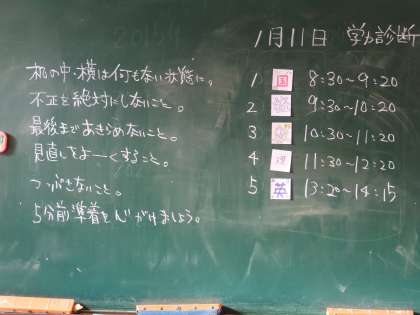 1月11日 学力診断
机の中・横は何もない状態に。
不正を絶対にしないこと。
最後まであきらめないこと。
見直しをよーくすること。
つっぷさないこと。
5分前準着を心がけましょう。
1 国 8:30~9:20
2 9:30~10:20
3 10:30~11:20
4 理 11:30~12:20
5 英 13:20~14:15